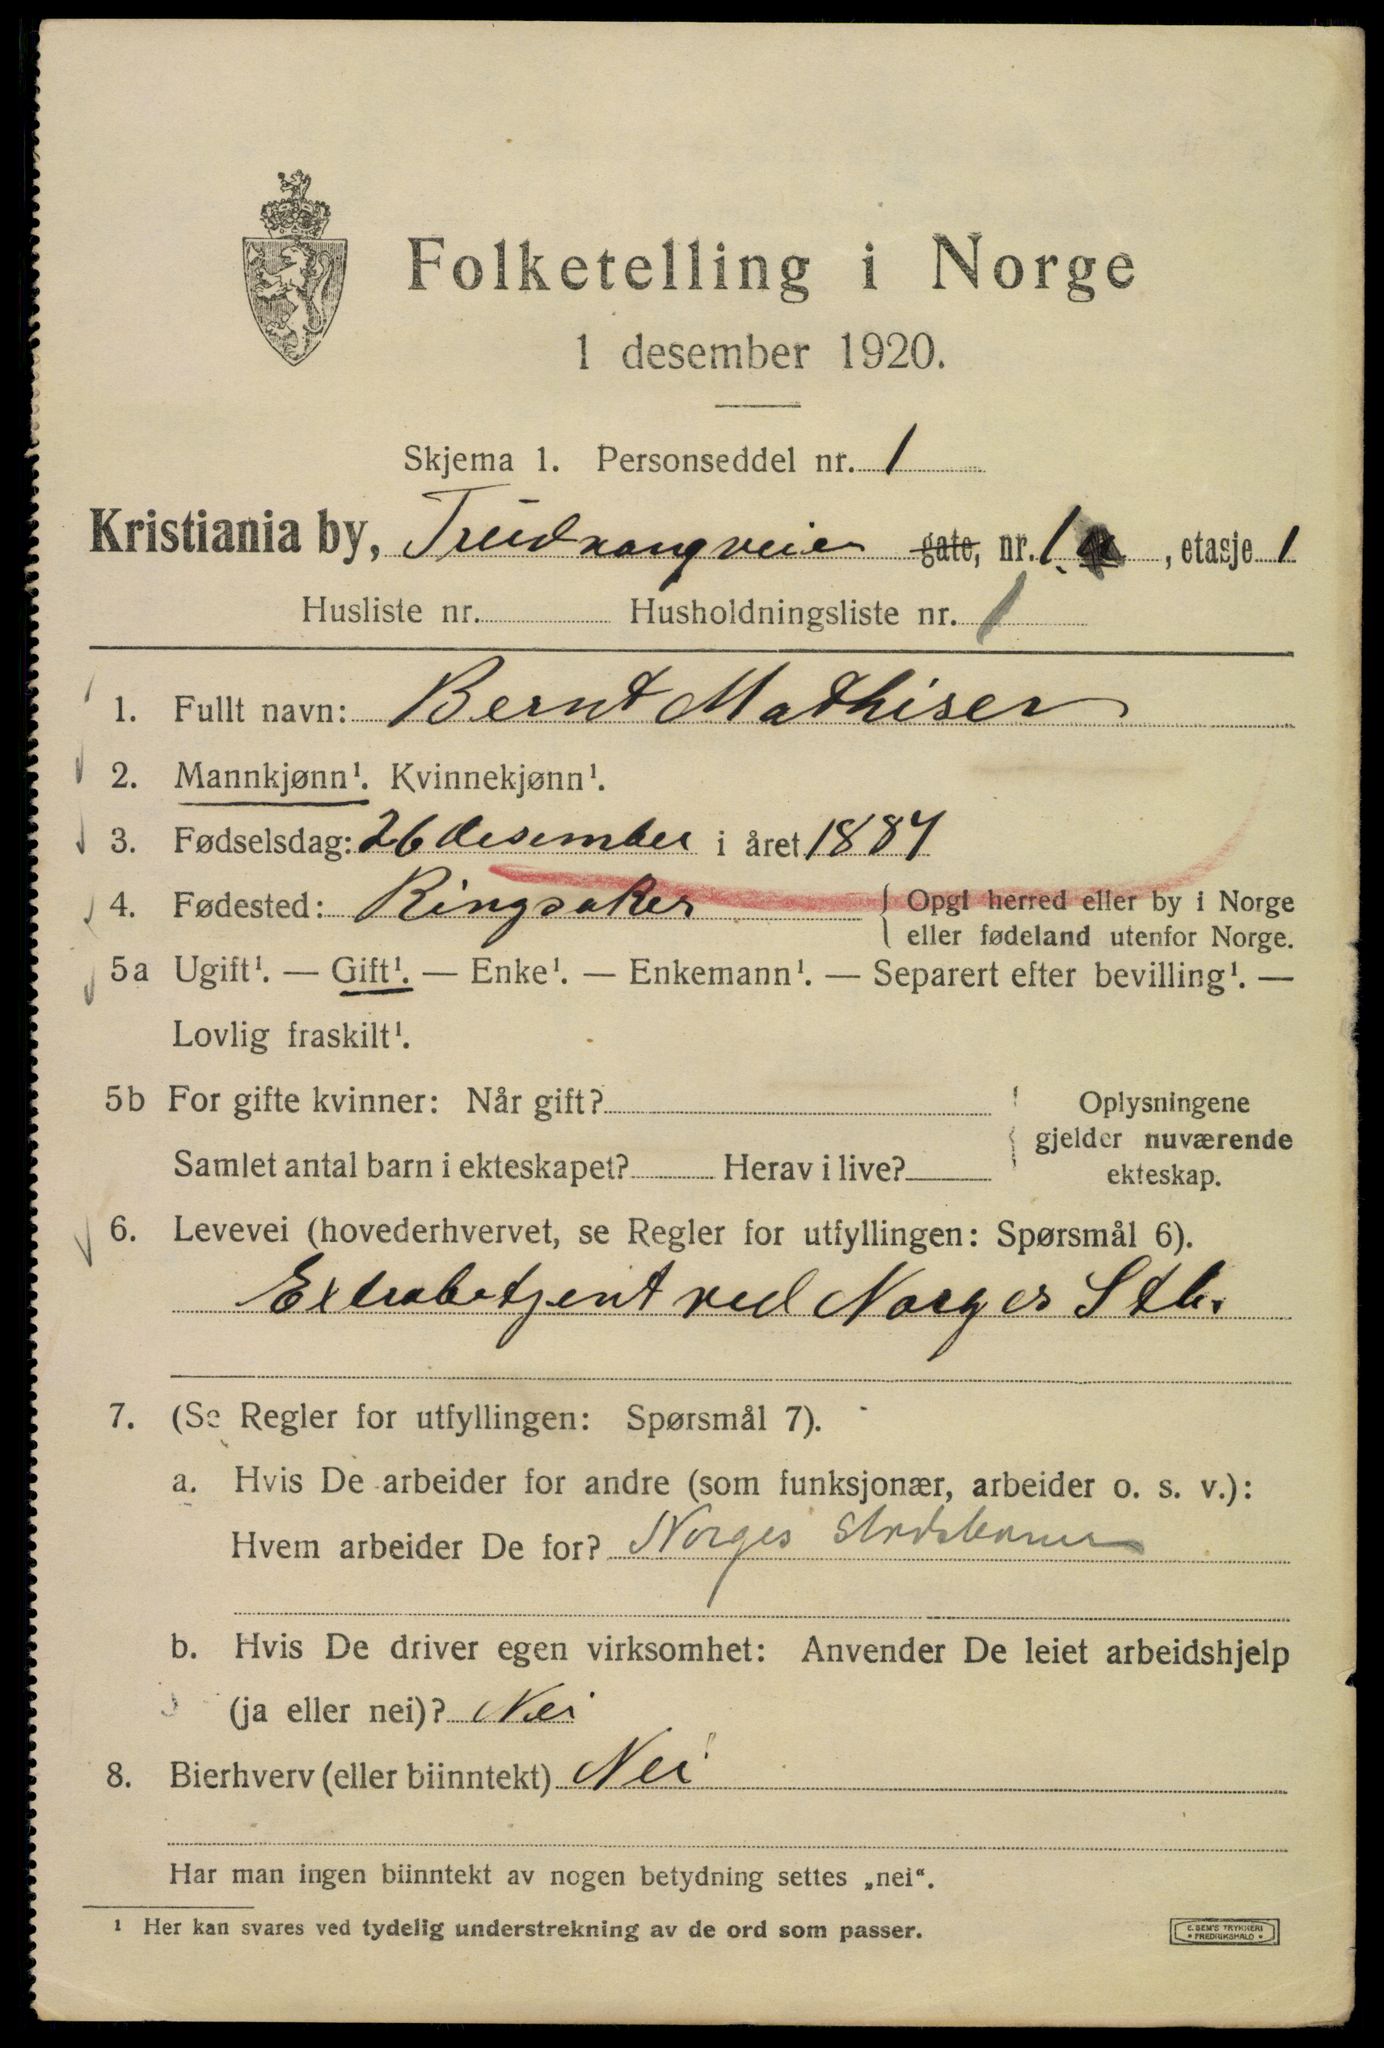 Folketelling i Norge
1 desember 1920.
Skjema 1. Personseddel nr. 1
Kristiania by, Trudvangveien gate, nr. 1 , etasje 1
Husliste nr. Husholdningsliste nr. 1
1. Fullt navn: Bernt Mathisen
2. Mannkjønn¹. Kvinnekjønn¹.
3. Fødselsdag: 26 desember i året 1887
4. Fødested: Ringsaker { Opgi herred eller by i Norge
eller fødeland utenfor Norge.
5a Ugift¹. — Gift¹. — Enke¹. — Enkemann¹. — Separert efter bevilling¹. —
Lovlig fraskilt¹.
5b For gifte kvinner: Når gift? Oplysningene
gjelder nuværende
Samlet antal barn i ekteskapet? Herav i live? ekteskap.
6. Levevei (hovederhvervet, se Regler for utfyllingen: Spørsmål 6).
Extrabetjent ved Norges Stb.
7. (Se Regler for utfyllingen: Spørsmål 7).
a. Hvis De arbeider for andre (som funksjonær, arbeider o. s. v.):
Hvem arbeider De for? Norges Statsbaner
b. Hvis De driver egen virksomhet: Anvender De leiet arbeidshjelp
(ja eller nei)? Nei
8. Bierhverv (eller biinntekt) Nei
Har man ingen biinntekt av nogen betydning settes „nei“.
¹ Her kan svares ved tydelig understrekning av de ord som passer.
E. SEM'S TRYKKERI
FREDRIKSHALD